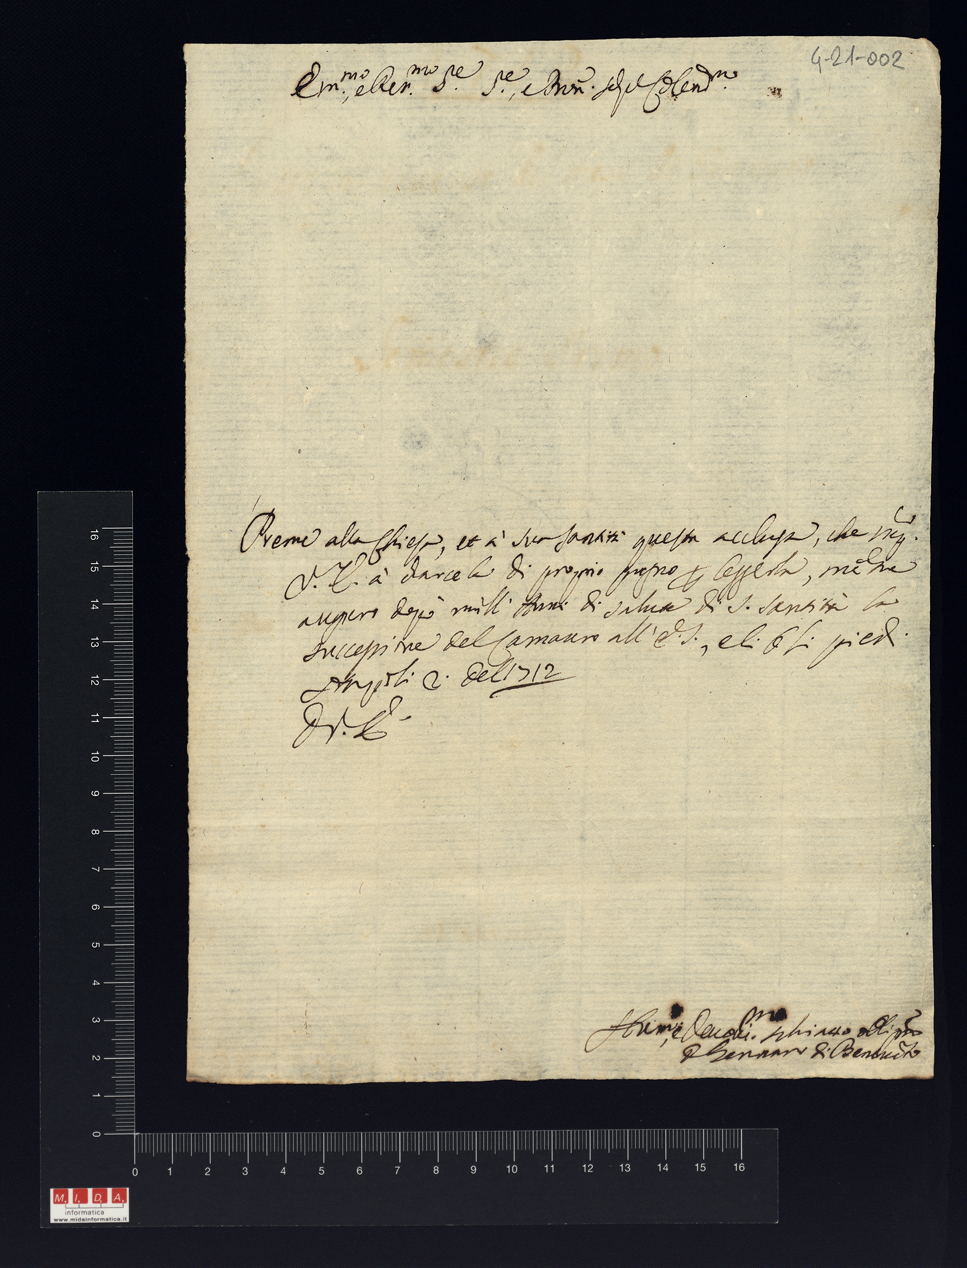 4-21-002
Em.mo, e Rev.mo S.re S.re, e Prōn. Colend.mo
Preme alla Chiesa, et à Sua Santità questa acclusa, che
V. E. à darcela di proprio pugno leggerla, mentre
auguro dopò mill' Anni di salute di S. Santità la
successione del Camauro all' E. S., e li piedi
Napoli 2. del 1712
D. V. E.
Hum.o, e Devotis.mo schiavo
D Gennaro di Benedetto
16
15
14
13
12
11
10
9
8
7
6
5
4
3
2
1
0
0 1 2 3 4 5 6 7 8 9 10 11 12 13 14 15 16
M. I. D. A.
informatica
www.midainformatica.it